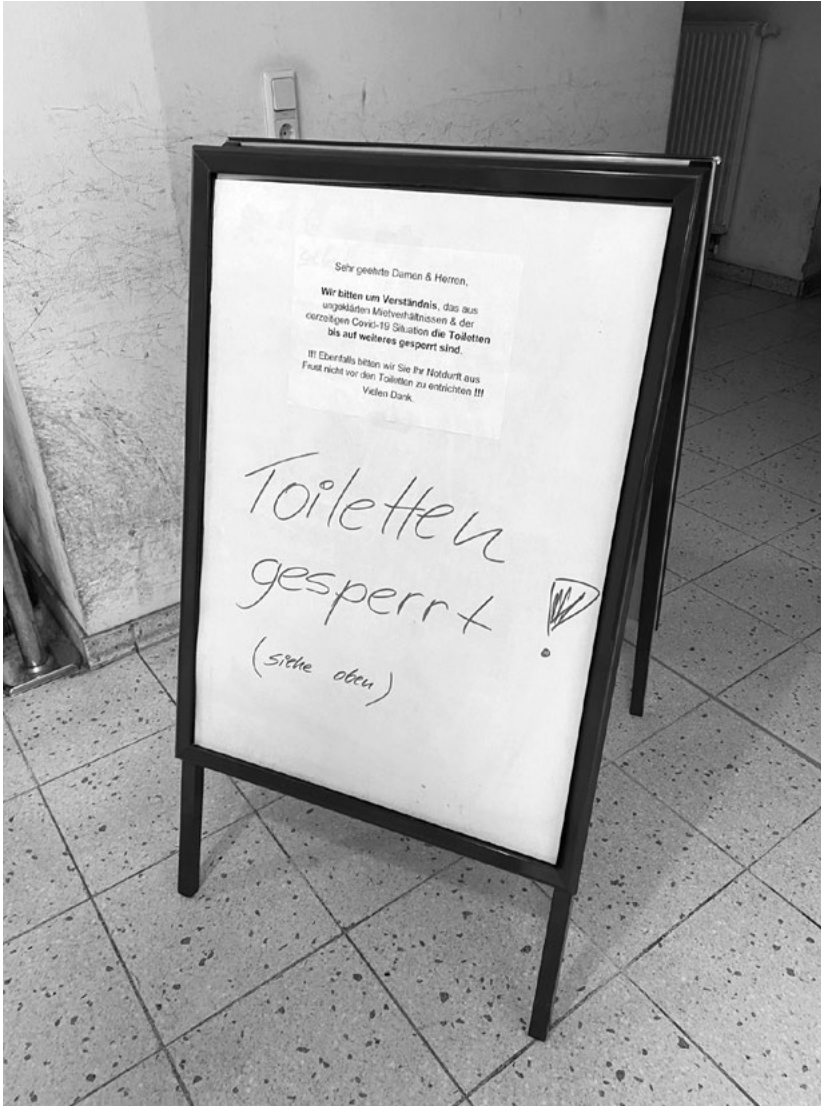 Sehr geehrte Damen & Herren,
Wir bitten um Verständnis, das aus
ungeklärten Mietverhältnissen & der
derzeitigen Covid-19 Situation die Toiletten
bis auf weiteres gesperrt sind.
!!! Ebenfalls bitten wir Sie Ihr Notdurft aus
Frust nicht vor den Toiletten zu entrichten !!!
Vielen Dank.
Toiletten
gesperrt !
(siehe oben)